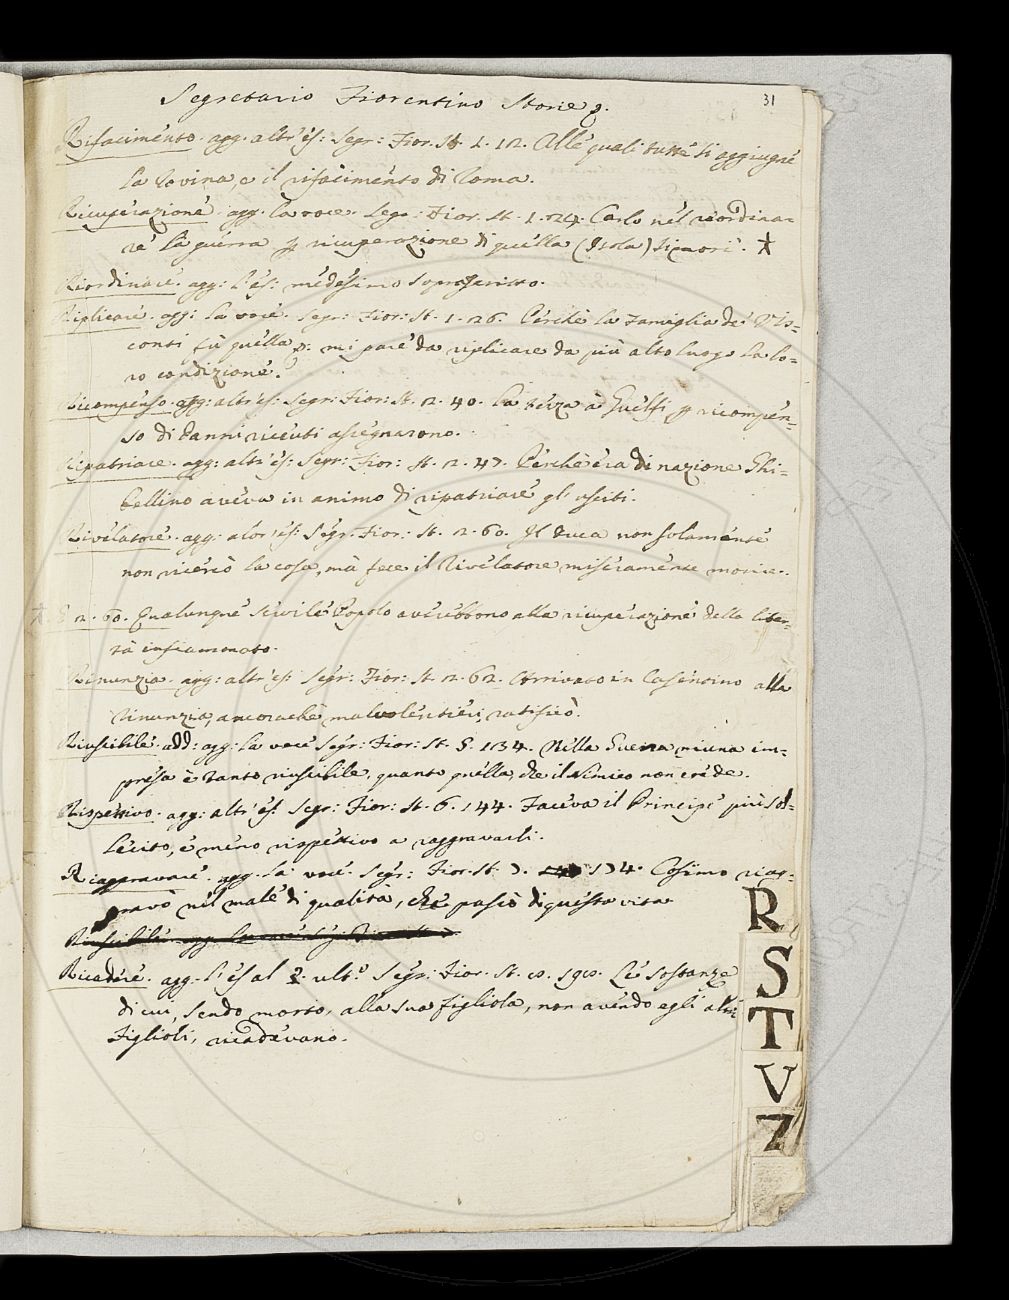 31
Segretario Fiorentino Storie p.
Rifacimento. agg. altr'es: Segr: Fior. St. 1. 12. Alle quali tutte si aggiugne
la rovina, e il rifacimento di Roma.
Ricuperazione. agg. la voce. Segr: Fior. St. 1. 24. Carlo nel riordina-
re la guerra p ricuperazione di quella (Isola) si morì.
Riordinare. agg: l'es: medesimo soprascritto.
Riplicare. agg: la voce. Segr: Fior: St. 1. 26. Perchè la Famiglia de' Vis=
conti fù quella p. mi pare da riplicare da più alto luogo la lo-
ro condizione.
Ricompenso. agg: altr'es: Segr: Fior: St. 2. 40. la terza a' Guelfi p ricompen-
so di danni ricevuti assegnarono.
Ripatriare. agg: altr'es: Segr: Fior: St. 2. 47. Perchè era di nazione Ghi=
bellino aveva in animo di ripatriare gl'usciti.
Rivelatore. agg: altr'es: Segr: Fior: St. 2. 60. Il Duca non solamente
non ricercò la cosa, mà fece il Rivelatore miseramente morire.
E 2. 60. Qualunque servile Popolo averebbono alla ricuperazione della liber-
tà infiammato.
Rinunzia. agg: altr'es: Segr: Fior: St. 2. 62. Arrivato in Casentino alla
rinunzia, ancorachè malvolentieri, ratificò.
Riuscibile. add: agg: la voce Segr: Fior: St. 5. 134. Nella Guerra niuna im-
presa è tanto riuscibile, quanto quella, che il Nimico non crede.
Rispettivo. agg: altr'es: Segr: Fior: St. 6. 144. Faceva il Principe più sol-
lecito, e meno rispettivo a raggravarli.
Riaggravare. agg. la voce. Segr: Fior. St. 7. 174. Cosimo riag-
gravò nel male di qualità, che passò di questa vita
Ricadere. agg. l'es al §. ult.o Segr: Fior. St. 8. 198. Le sostanze
di cui, sendo morto, alla sua figliola, non avendo egli altri
Figlioli, ricadevano.
R
S
T
V
Z